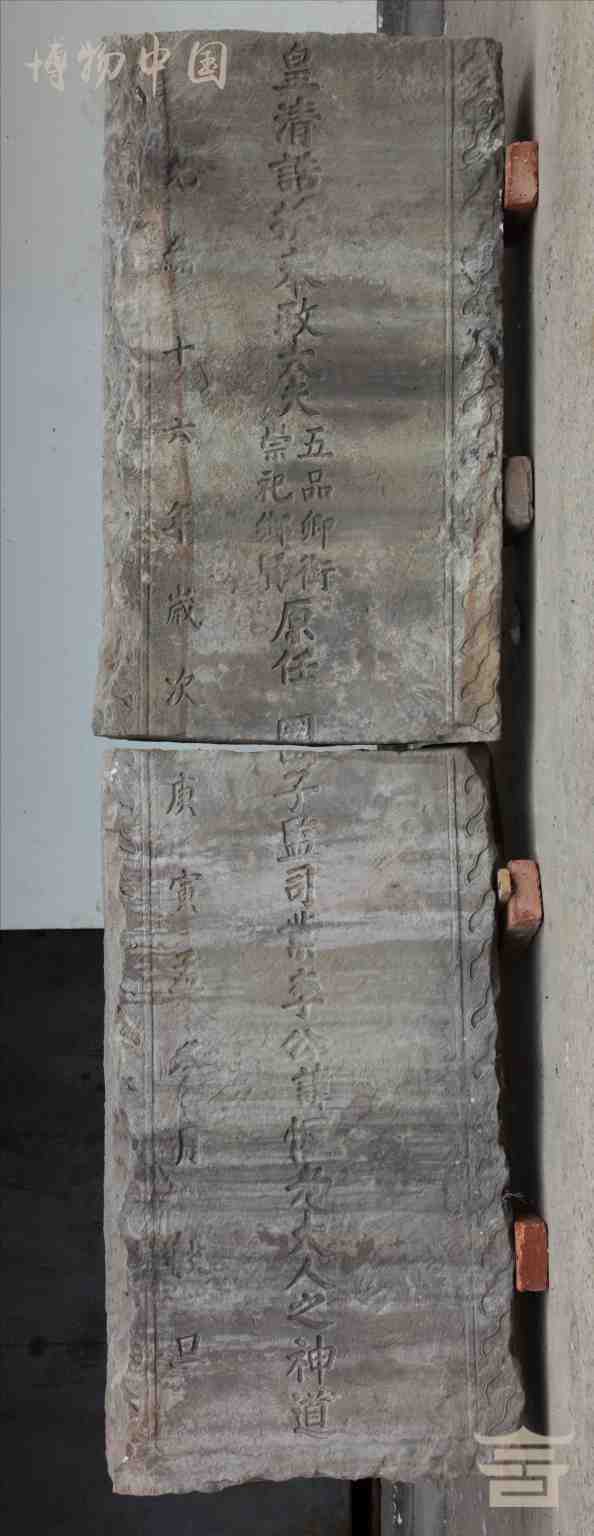 博物中国
皇清誥授奉政大夫
五品卿銜
崇祀鄉賢
原任國子監司業李公諱恒老大人之神道
光緒十六年歲次庚寅孟冬月旦